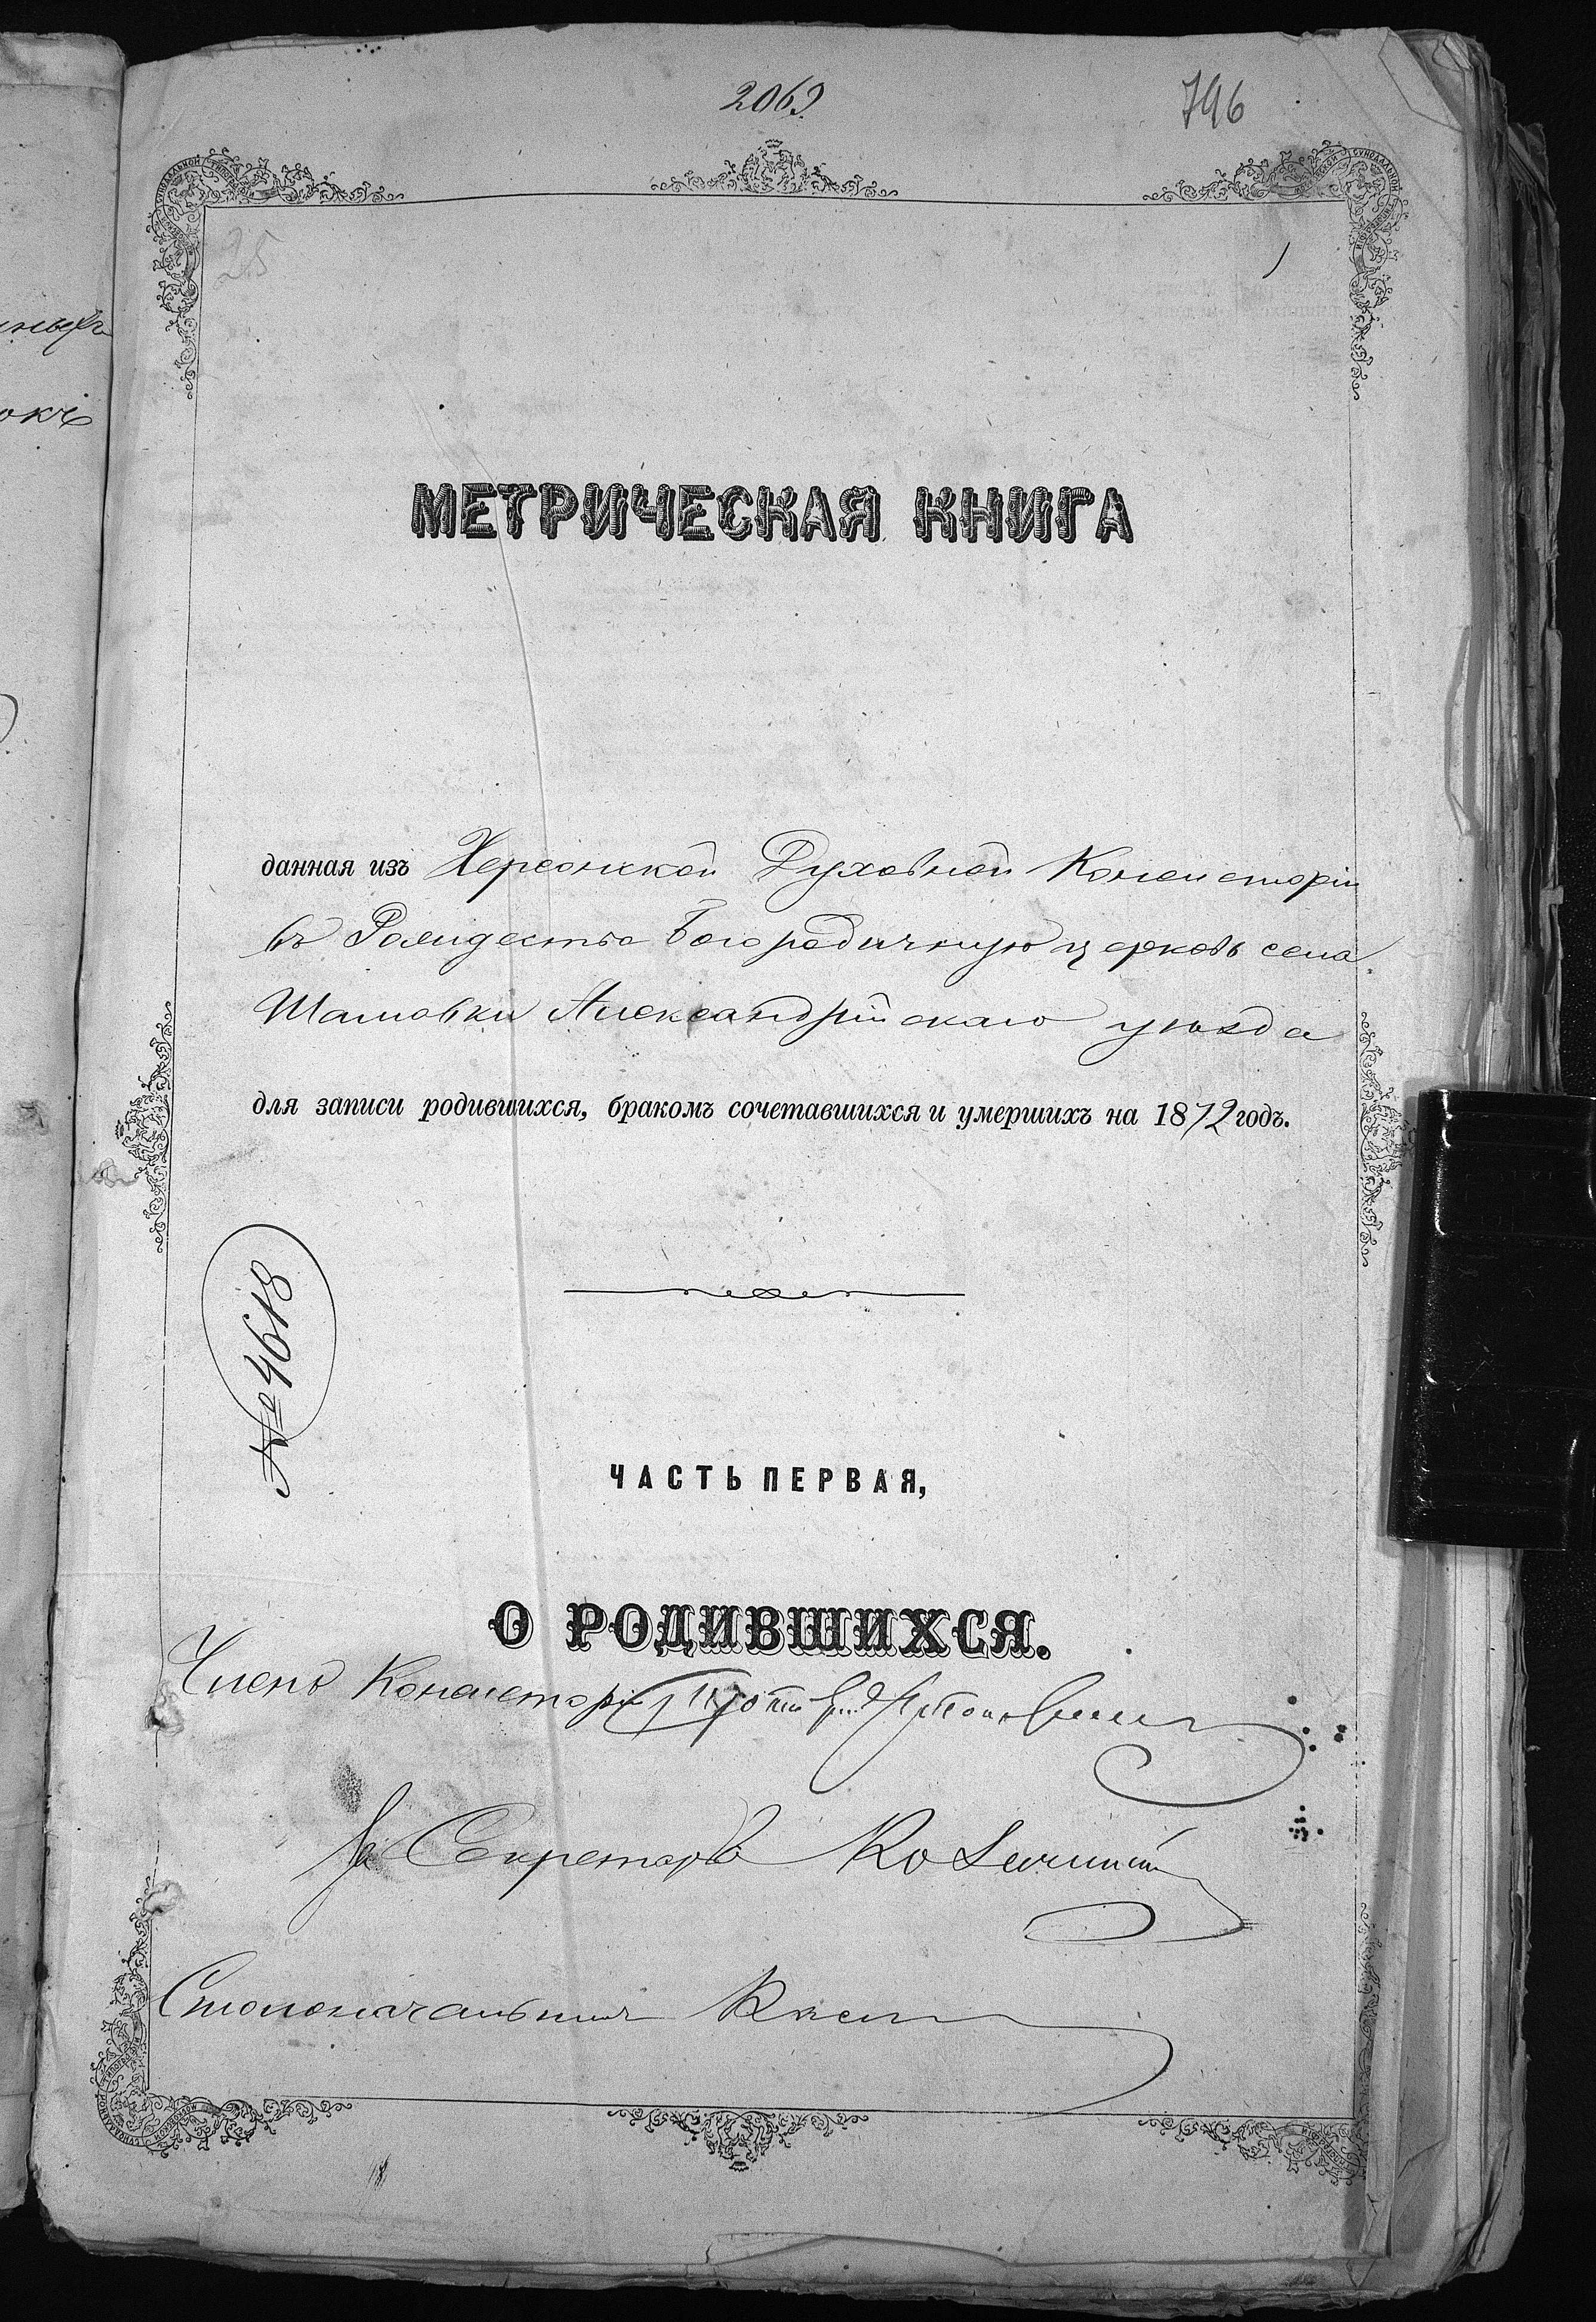 2063.
796
25
МЕТРИЧЕСКАЯ КНИГА
данная изъ Херсонской Духовной Консисторіи
въ Рождество Богородичную церковь села
Шамовки Александрійскаго уѣзда
для записи родившихся, бракомъ сочетавшихся и умершихъ на 1872 годъ.
№ 4618
ЧАСТЬ ПЕРВАЯ,
О РОДИВШИХСЯ.
Членъ Консисторіи
За Секретаря
Столоначальникъ